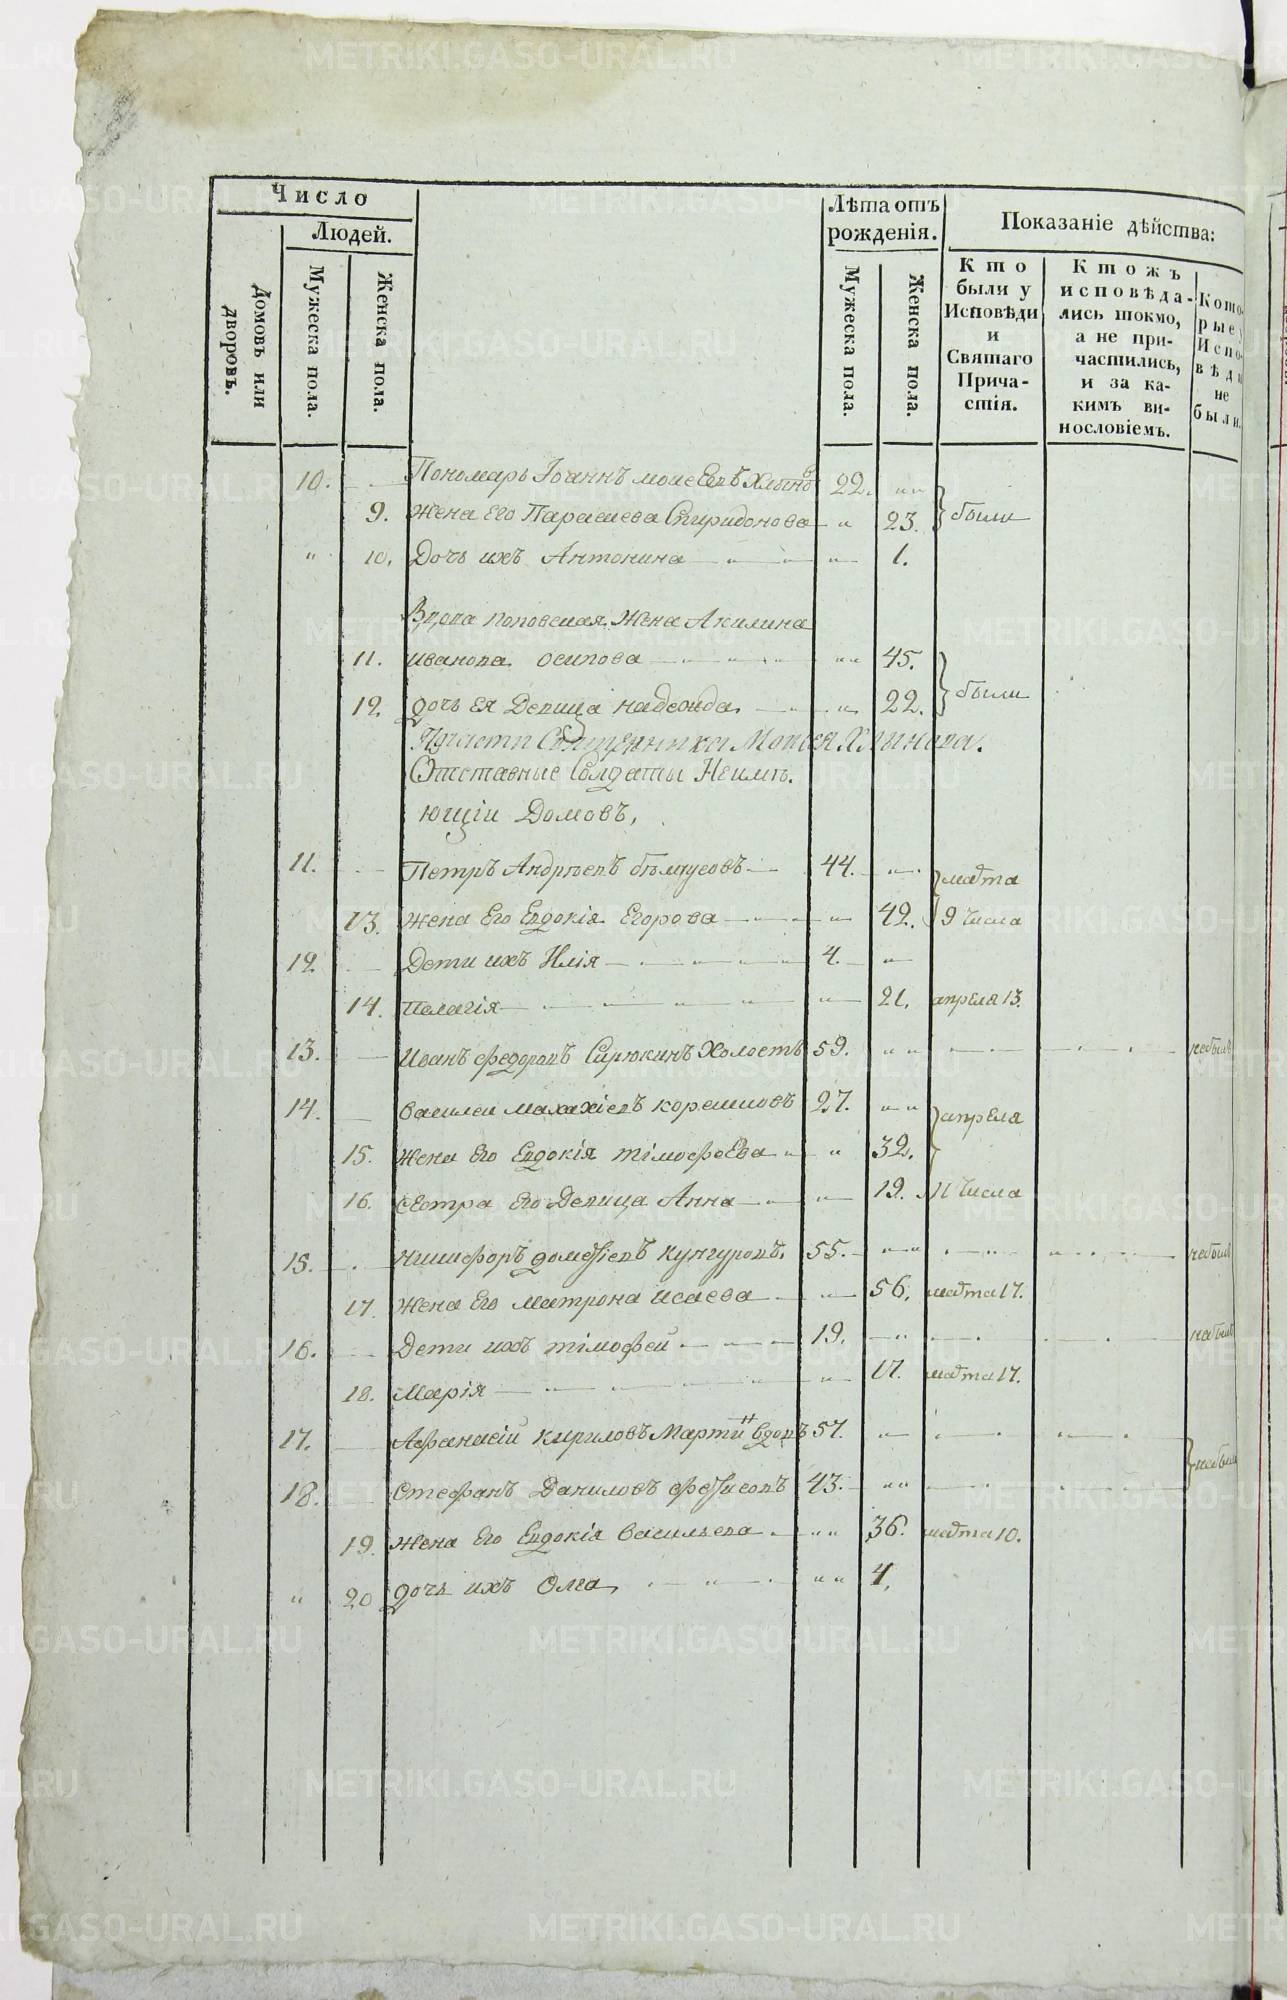 Число
Людей.
Домовъ или дворовъ.
Мужеска пола.
Женска пола.
Лѣта отъ рожденія.
Мужеска пола.
Женска пола.
Показаніе дѣйства:
Кто были у Исповѣди и Святаго Причастія.
Ктожъ исповѣдались токмо, а не причастились, и за какимъ винословіемъ.
Которые у Исповѣди не были.
10. Пономарь Іоаннъ моисеевъ Хлыновъ 22. были
9. Жена Его Параскева Спиридонова 23.
" 10. Дочь ихъ Антонина 1.
Вдова поповская Жена Акилина
11. иванова осипова 45. были
12. дочь ея Девица надежда 22.
Прчасти Священника Моисея Хлынова.
Отставные Солдаты Неимѣ.
ющіи Домовъ,
11. Петръ Андрѣевъ 44. марта
13. Жена Его Евдокія Егорова 42. 9 числа
12. Дети ихъ Илія 4.
14. Пелагія 21. апреля 13.
13. Иванъ федоровъ Сирюкинъ Холостъ 59. небылъ
14. василеи малахіевъ 27. апреля
15. Жена Его Евдокія тімофеева 32.
16. сестра Его Девица Анна 19. 11 числа
15. Никифоръ дометіевъ кунгуровъ 55. небылъ
17. Жена Его матрона исаева 56. марта 17.
16. Дети ихъ тімофей 19. небылъ
18. Марія 17. марта 17.
17. Афанасіи кириловъ Марти н вдовъ 57. небыли
18. Стефанъ Даниловъ 43.
19. Жена Его Евдокія васильева 36. марта 10.
" 20 дочь ихъ Олга 4.
METRIKI.GASO-URAL.RU